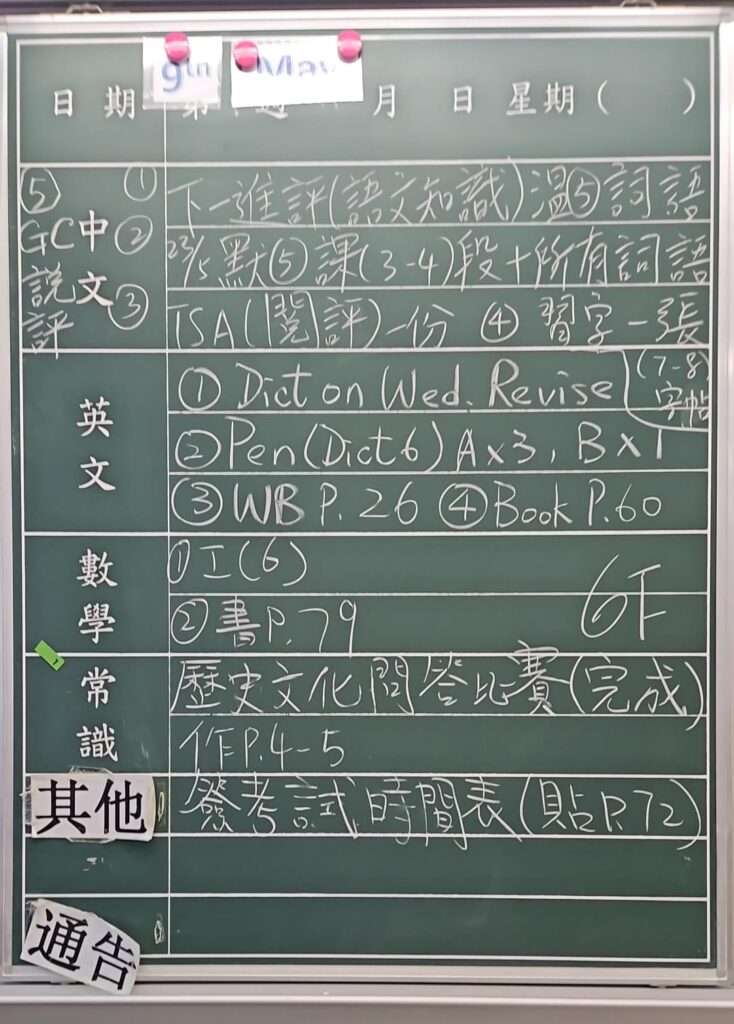 9th May
日期 第 週 月 日 星期( )
中文
① 下一進評(語文知識)溫⑤詞語
② 23/5默⑤課(3-4)段+所有詞語
③ TSA(閱評)一份 ④ 習字一張
(7-8)字帖
⑤ GC說評
英文
① Dict on Wed. Revise
② Pen(Dict6) A×3, B×1
③ WB P.26 ④ Book P.60
數學
① 工(6)
② 書P.79
6F
常識
歷史文化問答比賽(完成)
作P.4-5
其他
簽考試時間表(貼P.72)
通告